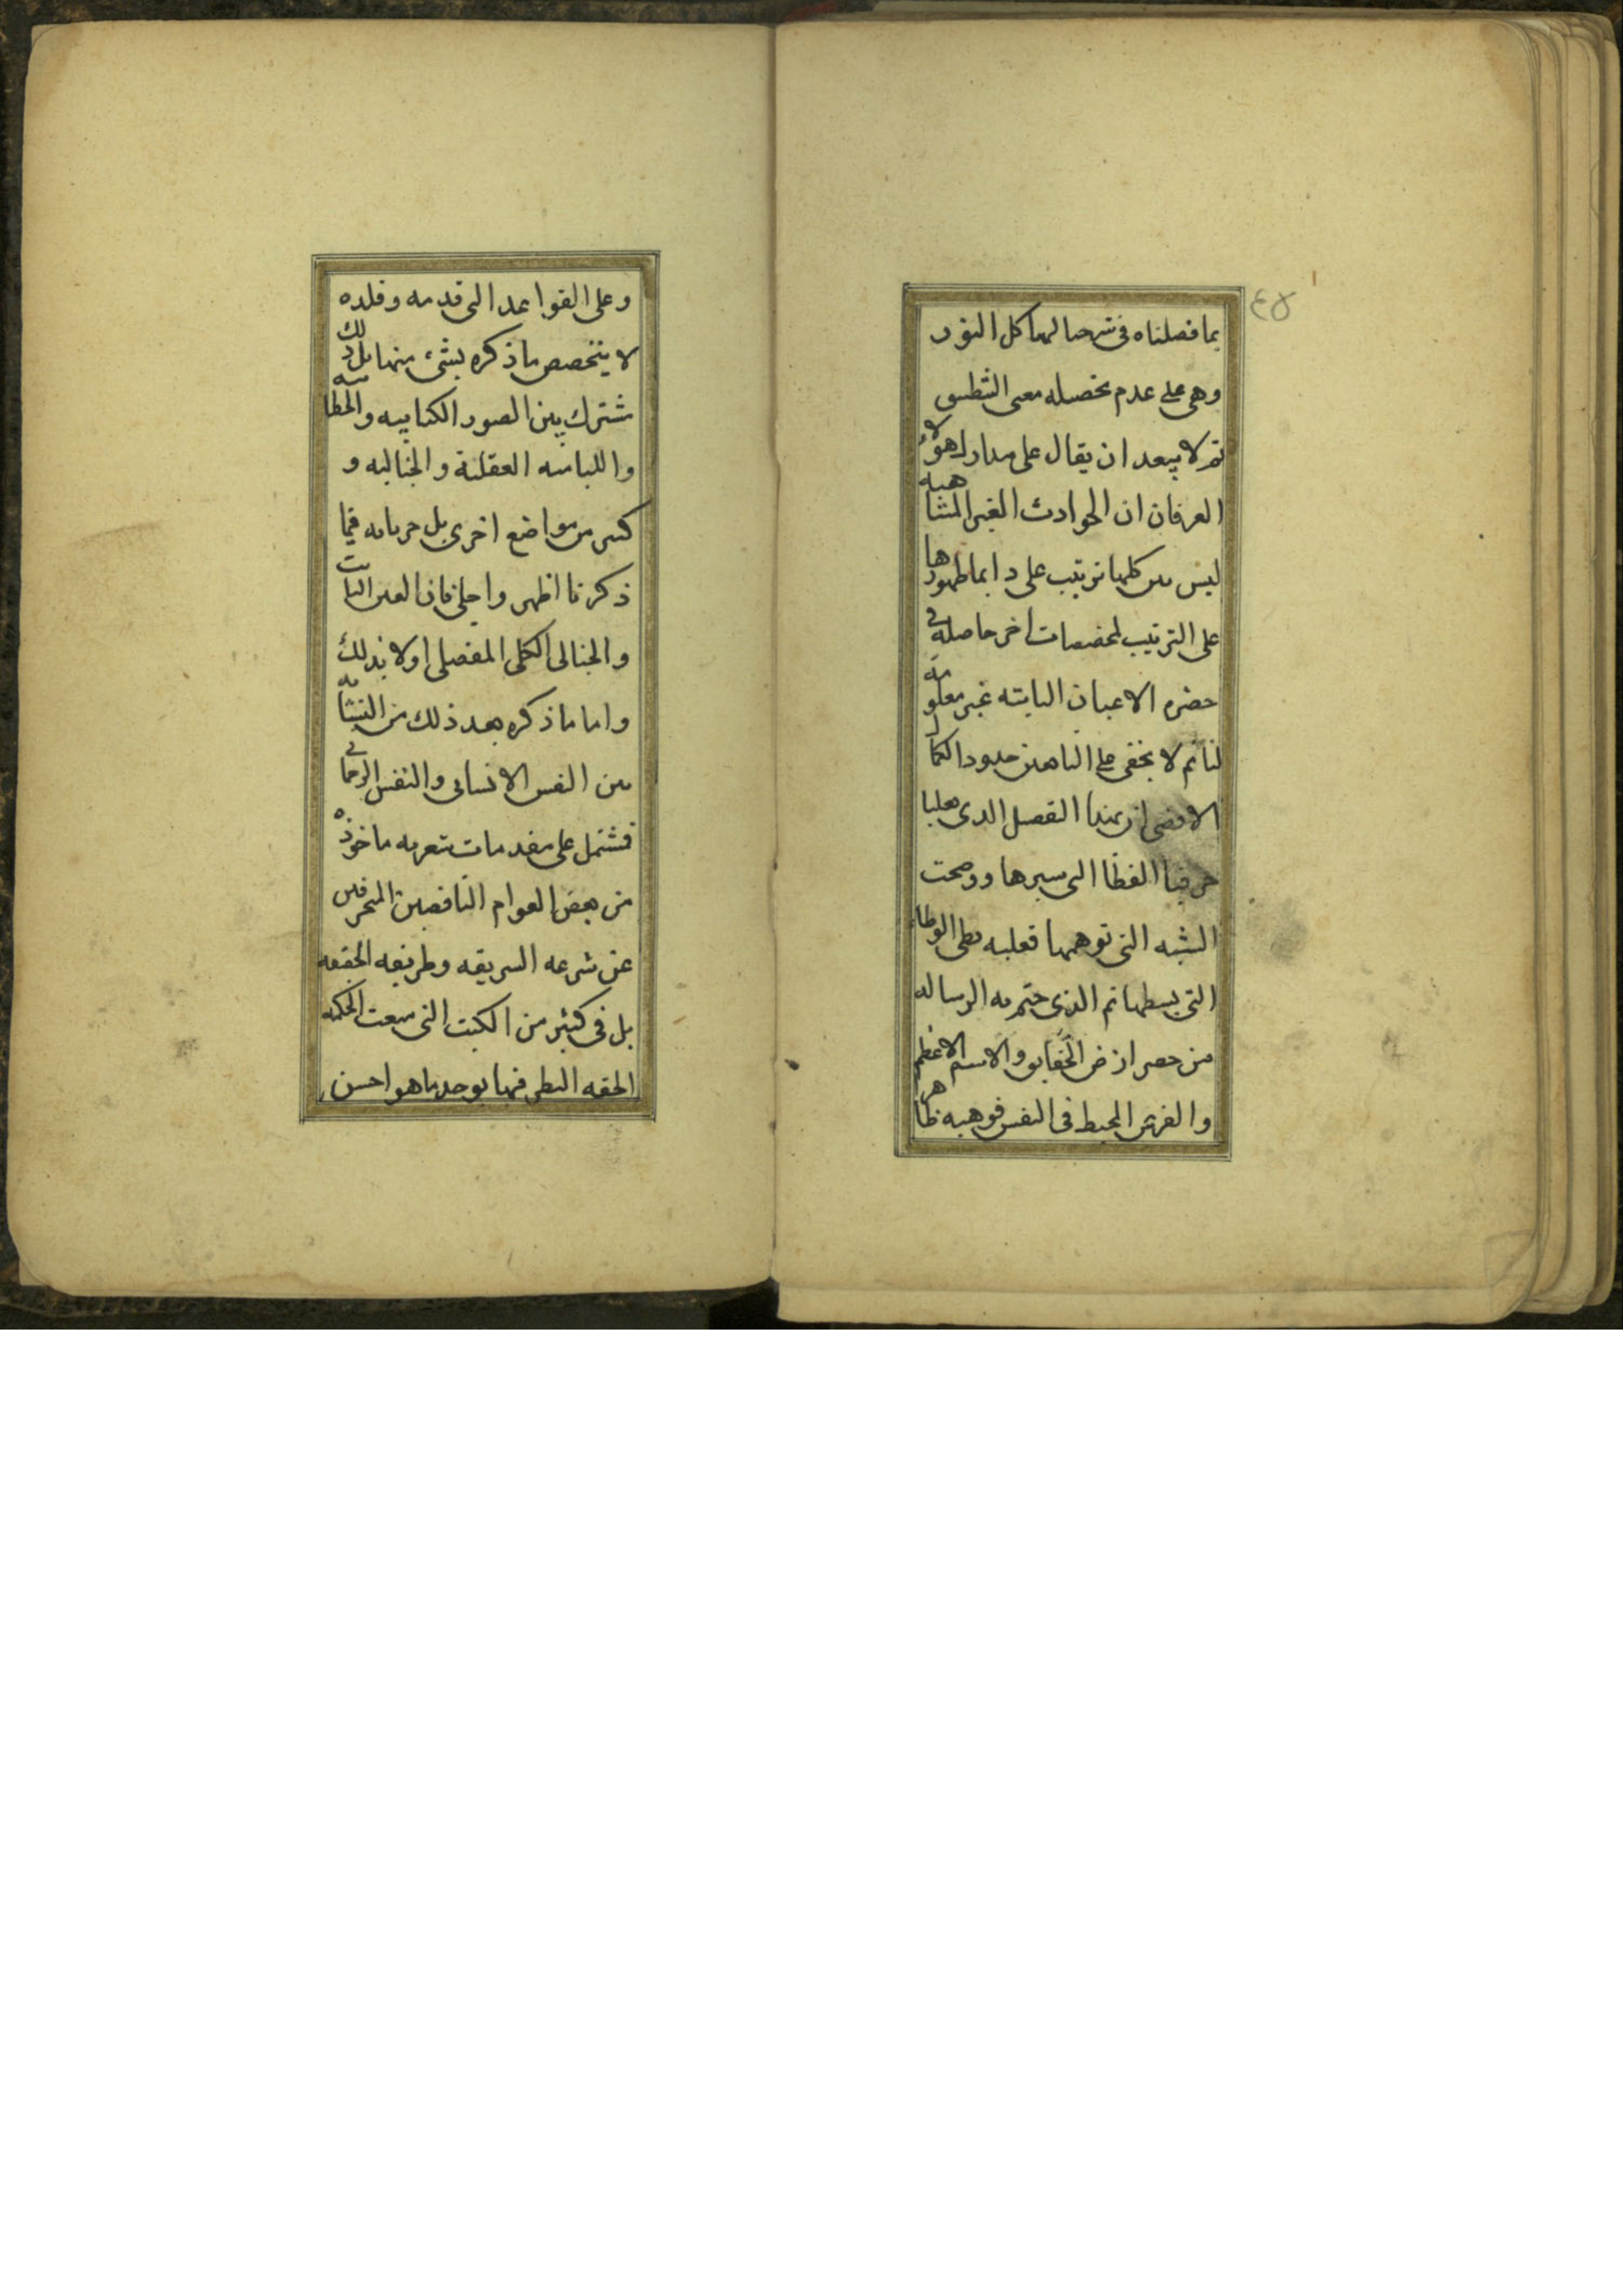 ٤٥
بما فصلناه فى شرحنا لهياكل النور
وهى على عدم تحصيله معنى التطبيق
ثم لا يبعد ان يقال على مدارك هؤلاء
العرفان ان الحوادث الغير المتناهيه
ليس بين كلها ترتيب على دايما ظهورها
على الترتيب لمخصصات اخر حاصلة فى
حضره الاعيان الثابته غير معلومة
لنا ثم لا يخفى على حدود الكمال
ان هذا الفصل الذى
التى سيرها ووضحت
الشبه التى توهمها فعليه بطى الوطاء
التى بسطها ثم الذى ختم به الرساله
من حصر ارض الحقايق والاسم الاعظم
والعرش المحيط فى النفس فوهيه ظاهر
وعلى القواعد التى قدمه وقلده
لا يتخصص ما ذكره بشىء منها بل ذلك
مشترك بين الصور الكتابيه والخطابيه
واللسانيه العقلية والخياليه و
كثير من مواضع اخرى بل جريانه فيما
ذكرنا اظهر واجلى فان العين الثابت
والخيالى الكلى المفصلى اولا بذلك
واما ما ذكره بعد ذلك من النشابه
بين النفس الانسانى والنفس الرحمانى
فشتمل على مقدمات شعريه ماخوذه
من بعض العوام الناقصين المنحرفين
عن شرعه الشريعه وطريقه الحقيقه
بل فى كثير من الكتب التى سمعت الحكمه
الحقه النظر فيها يوجد ما هو احسن